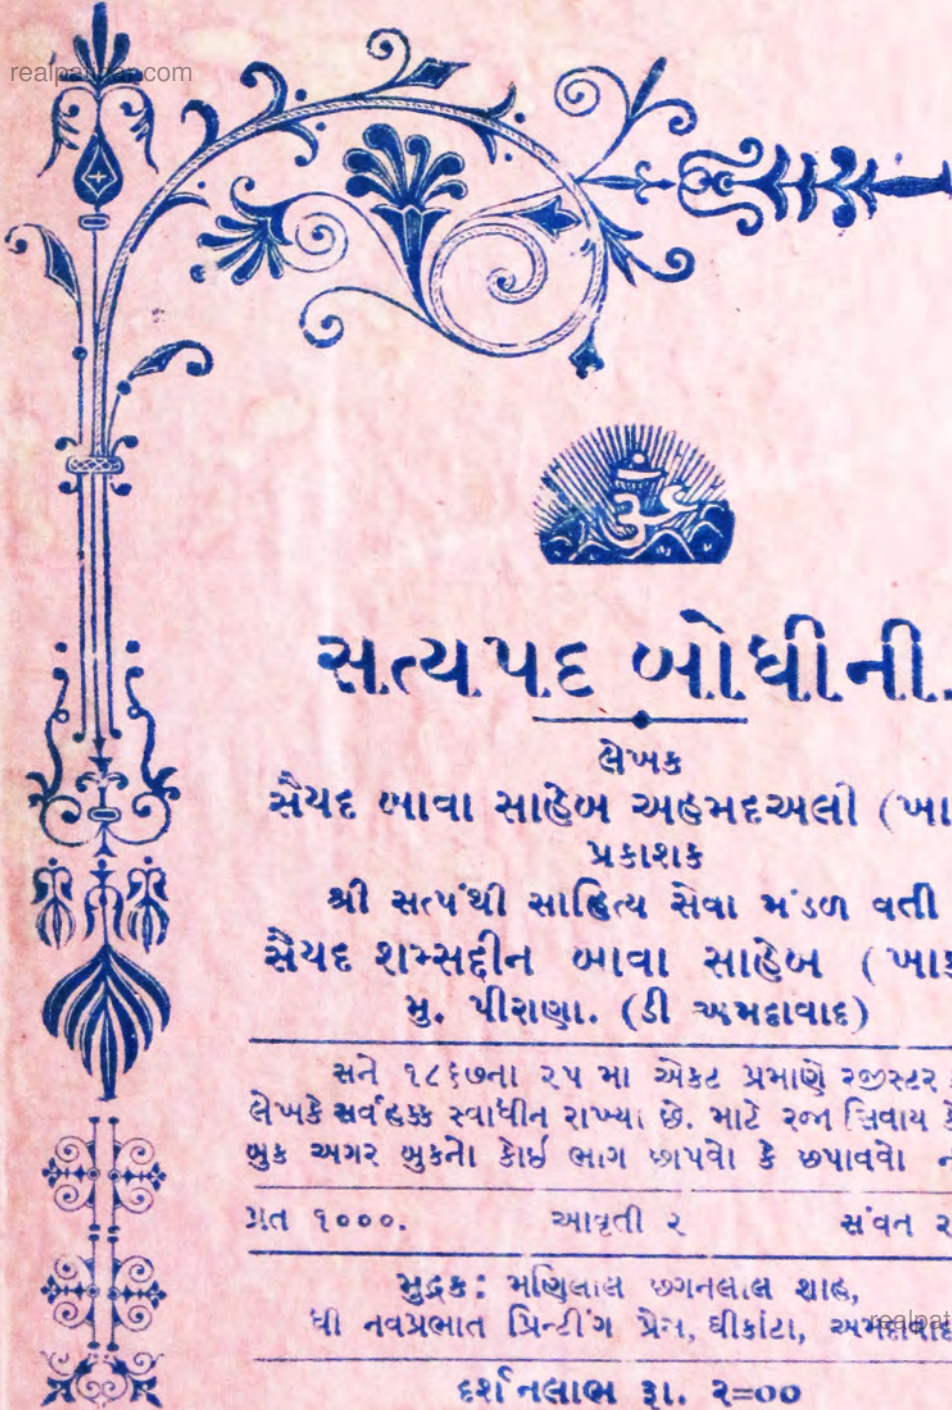 realpatidar.com
ૐ
સત્યપદ બોધીની.
લેખક
સૈયદ બાવા સાહેબ અહમદઅલી (ખા
પ્રકાશક
શ્રી સત્પંથી સાહિત્ય સેવા મંડળ વતી
સૈયદ શમ્સદ્દીન બાવા સાહેબ (ખાક
મુ. પીરાણા. (ડી અમદાવાદ)
સને ૧૮૬૭ના ૨૫ મા એકટ પ્રમાણે રજીસ્ટર
લેખકે સર્વહક્ક સ્વાધીન રાખ્યા છે. માટે રજા સિવાય
બુક અગર બુકનો કોઈ ભાગ છાપવો કે છપાવવો ન
પ્રત ૧૦૦૦. આવૃતી ૨ સંવત ૨
મુદ્રક: મણિલાલ છગનલાલ શાહ,
ધી નવપ્રભાત પ્રિન્ટીંગ પ્રેસ, ઘીકાંટા, અમદાવાદ
realpat
દર્શનલાભ રૂા. ૨=૦૦